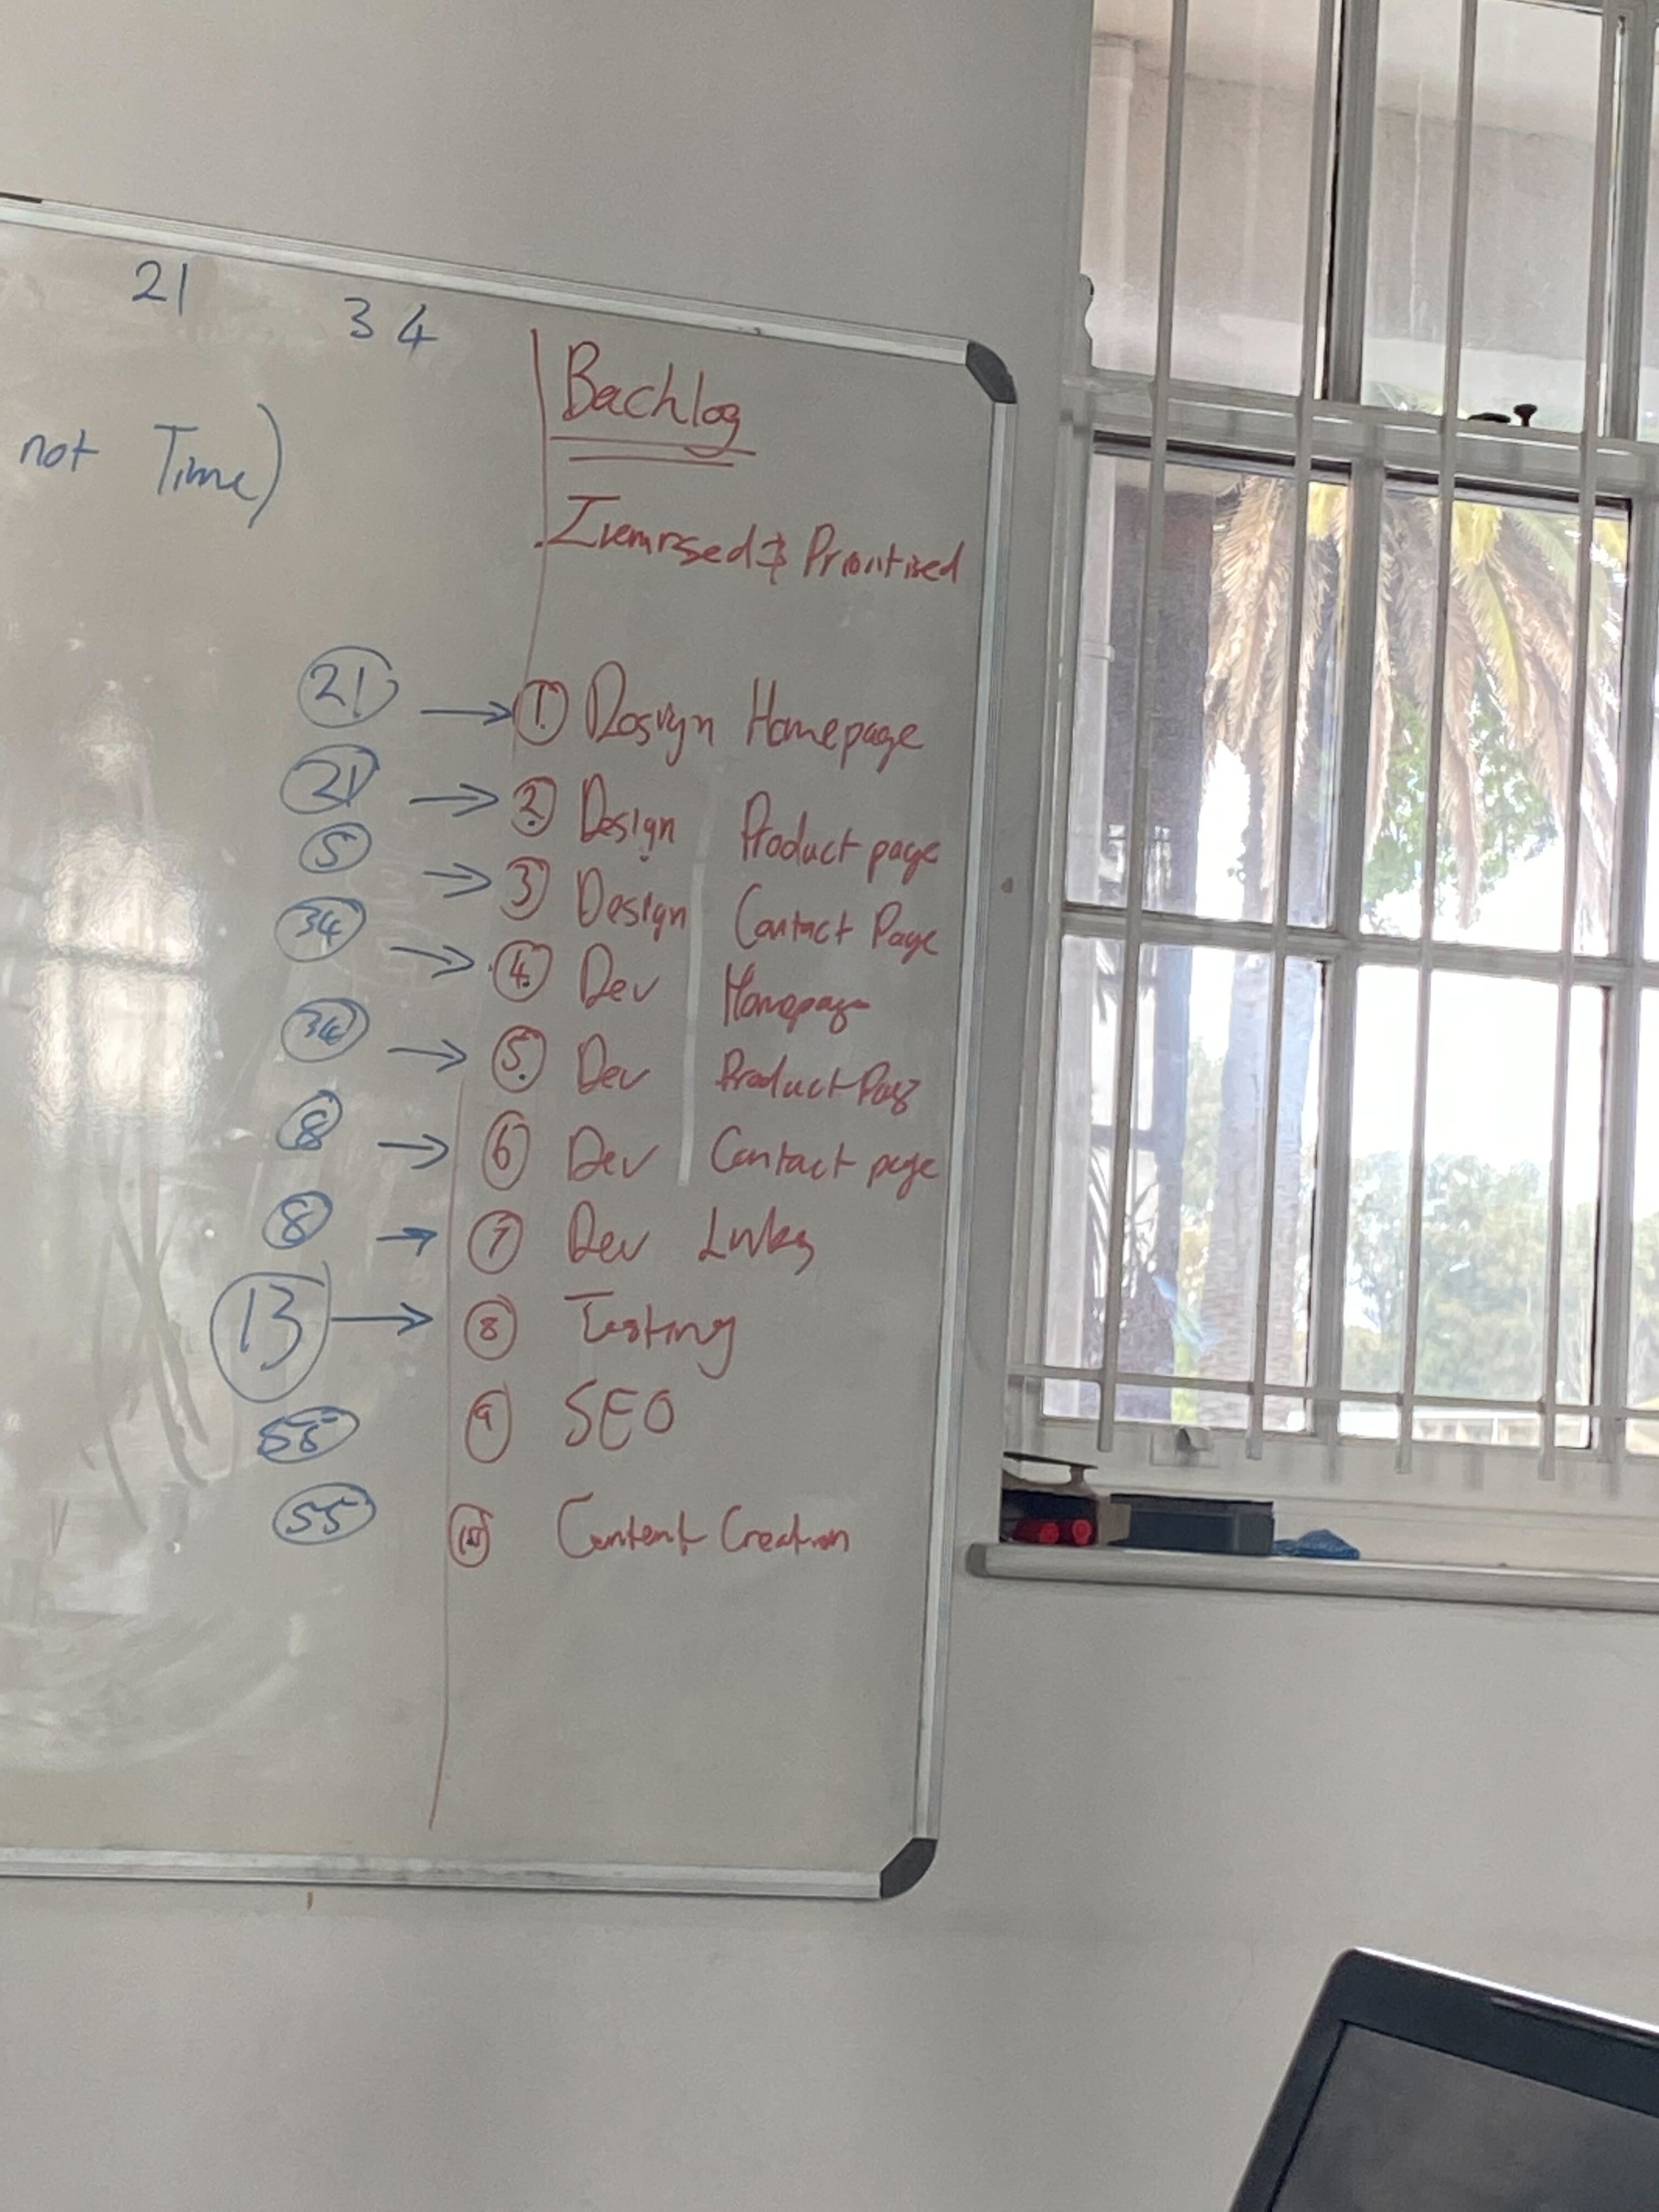 21 34
not Time)
Backlog
Itemised & Prioritised
21 → 1. Design Homepage
21 → 2. Design Product page
5 → 3 Design Contact Page
34 → 4. Dev Homepage
34 → 5. Dev Product Page
8 → 6 Dev Contact page
8 → 7 Dev Links
13 → 8 Testing
55 9 SEO
55 10 Content Creation